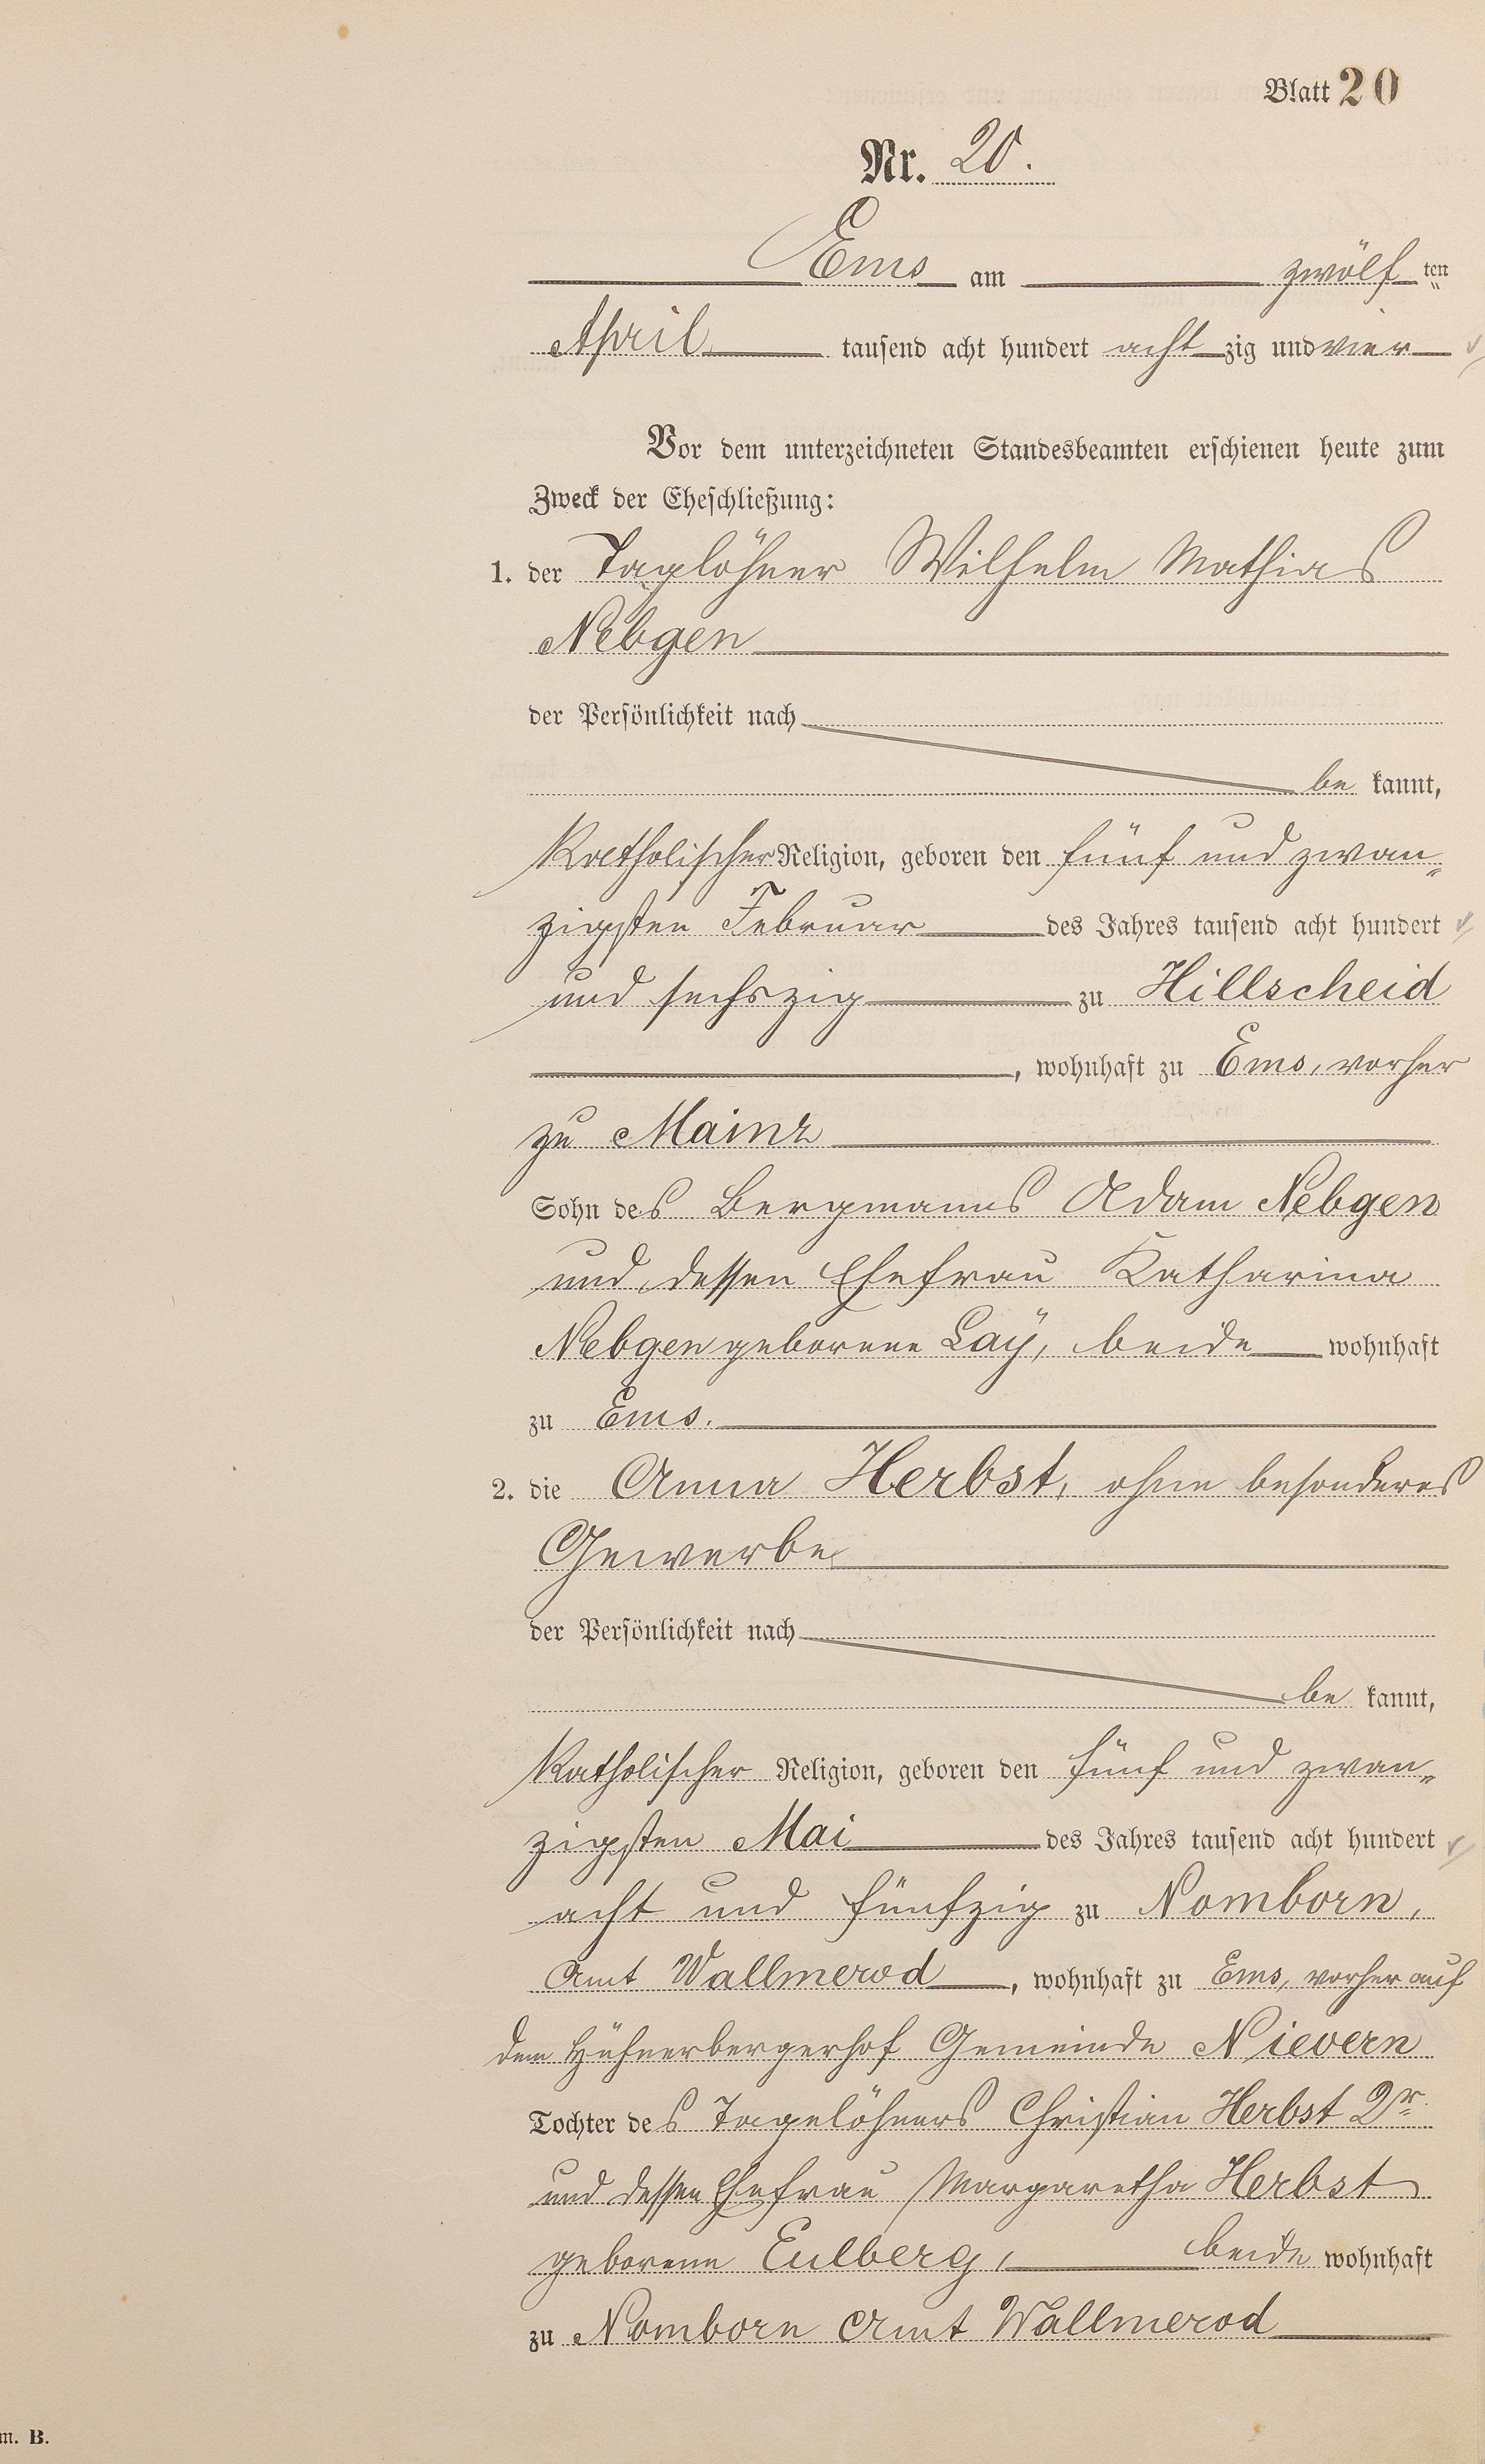 Blatt 20
Nr. 20.
Ems am zwölf ten
April tausend acht hundert acht zig und vier
Vor dem unterzeichneten Standesbeamten erschienen heute zum
Zweck der Eheschließung:
1. der Taglöhner Wilhelm Mathias
Nebgen
der Persönlichkeit nach
be kannt,
Katholischer Religion, geboren den fünf und zwan„
zigsten Februar des Jahres tausend acht hundert
und sechszig zu Hillscheid
, wohnhaft zu Ems, vorher
zu Mainz
Sohn des Bergmanns Adam Nebgen
und dessen Ehefrau Katharina
Nebgen geborene Laÿ, beide wohnhaft
zu Ems.
2. die Anna Herbst, ohne besonderes
Gewerbe
der Persönlichkeit nach
be kannt,
Katholischer Religion, geboren den fünf und zwan„
zigsten Mai des Jahres tausend acht hundert
acht und fünfzig zu Nomborn,
Amt Wallmerod, wohnhaft zu Ems, vorher auf
dem Hühnerbergerhof Gemeinde Nievern
Tochter des Tagelöhners Christian Herbst 2r
und dessen Ehefrau Margaretha Herbst
geborene Eulberg, beide wohnhaft
zu Nomborn Amt Wallmerod
m. B.